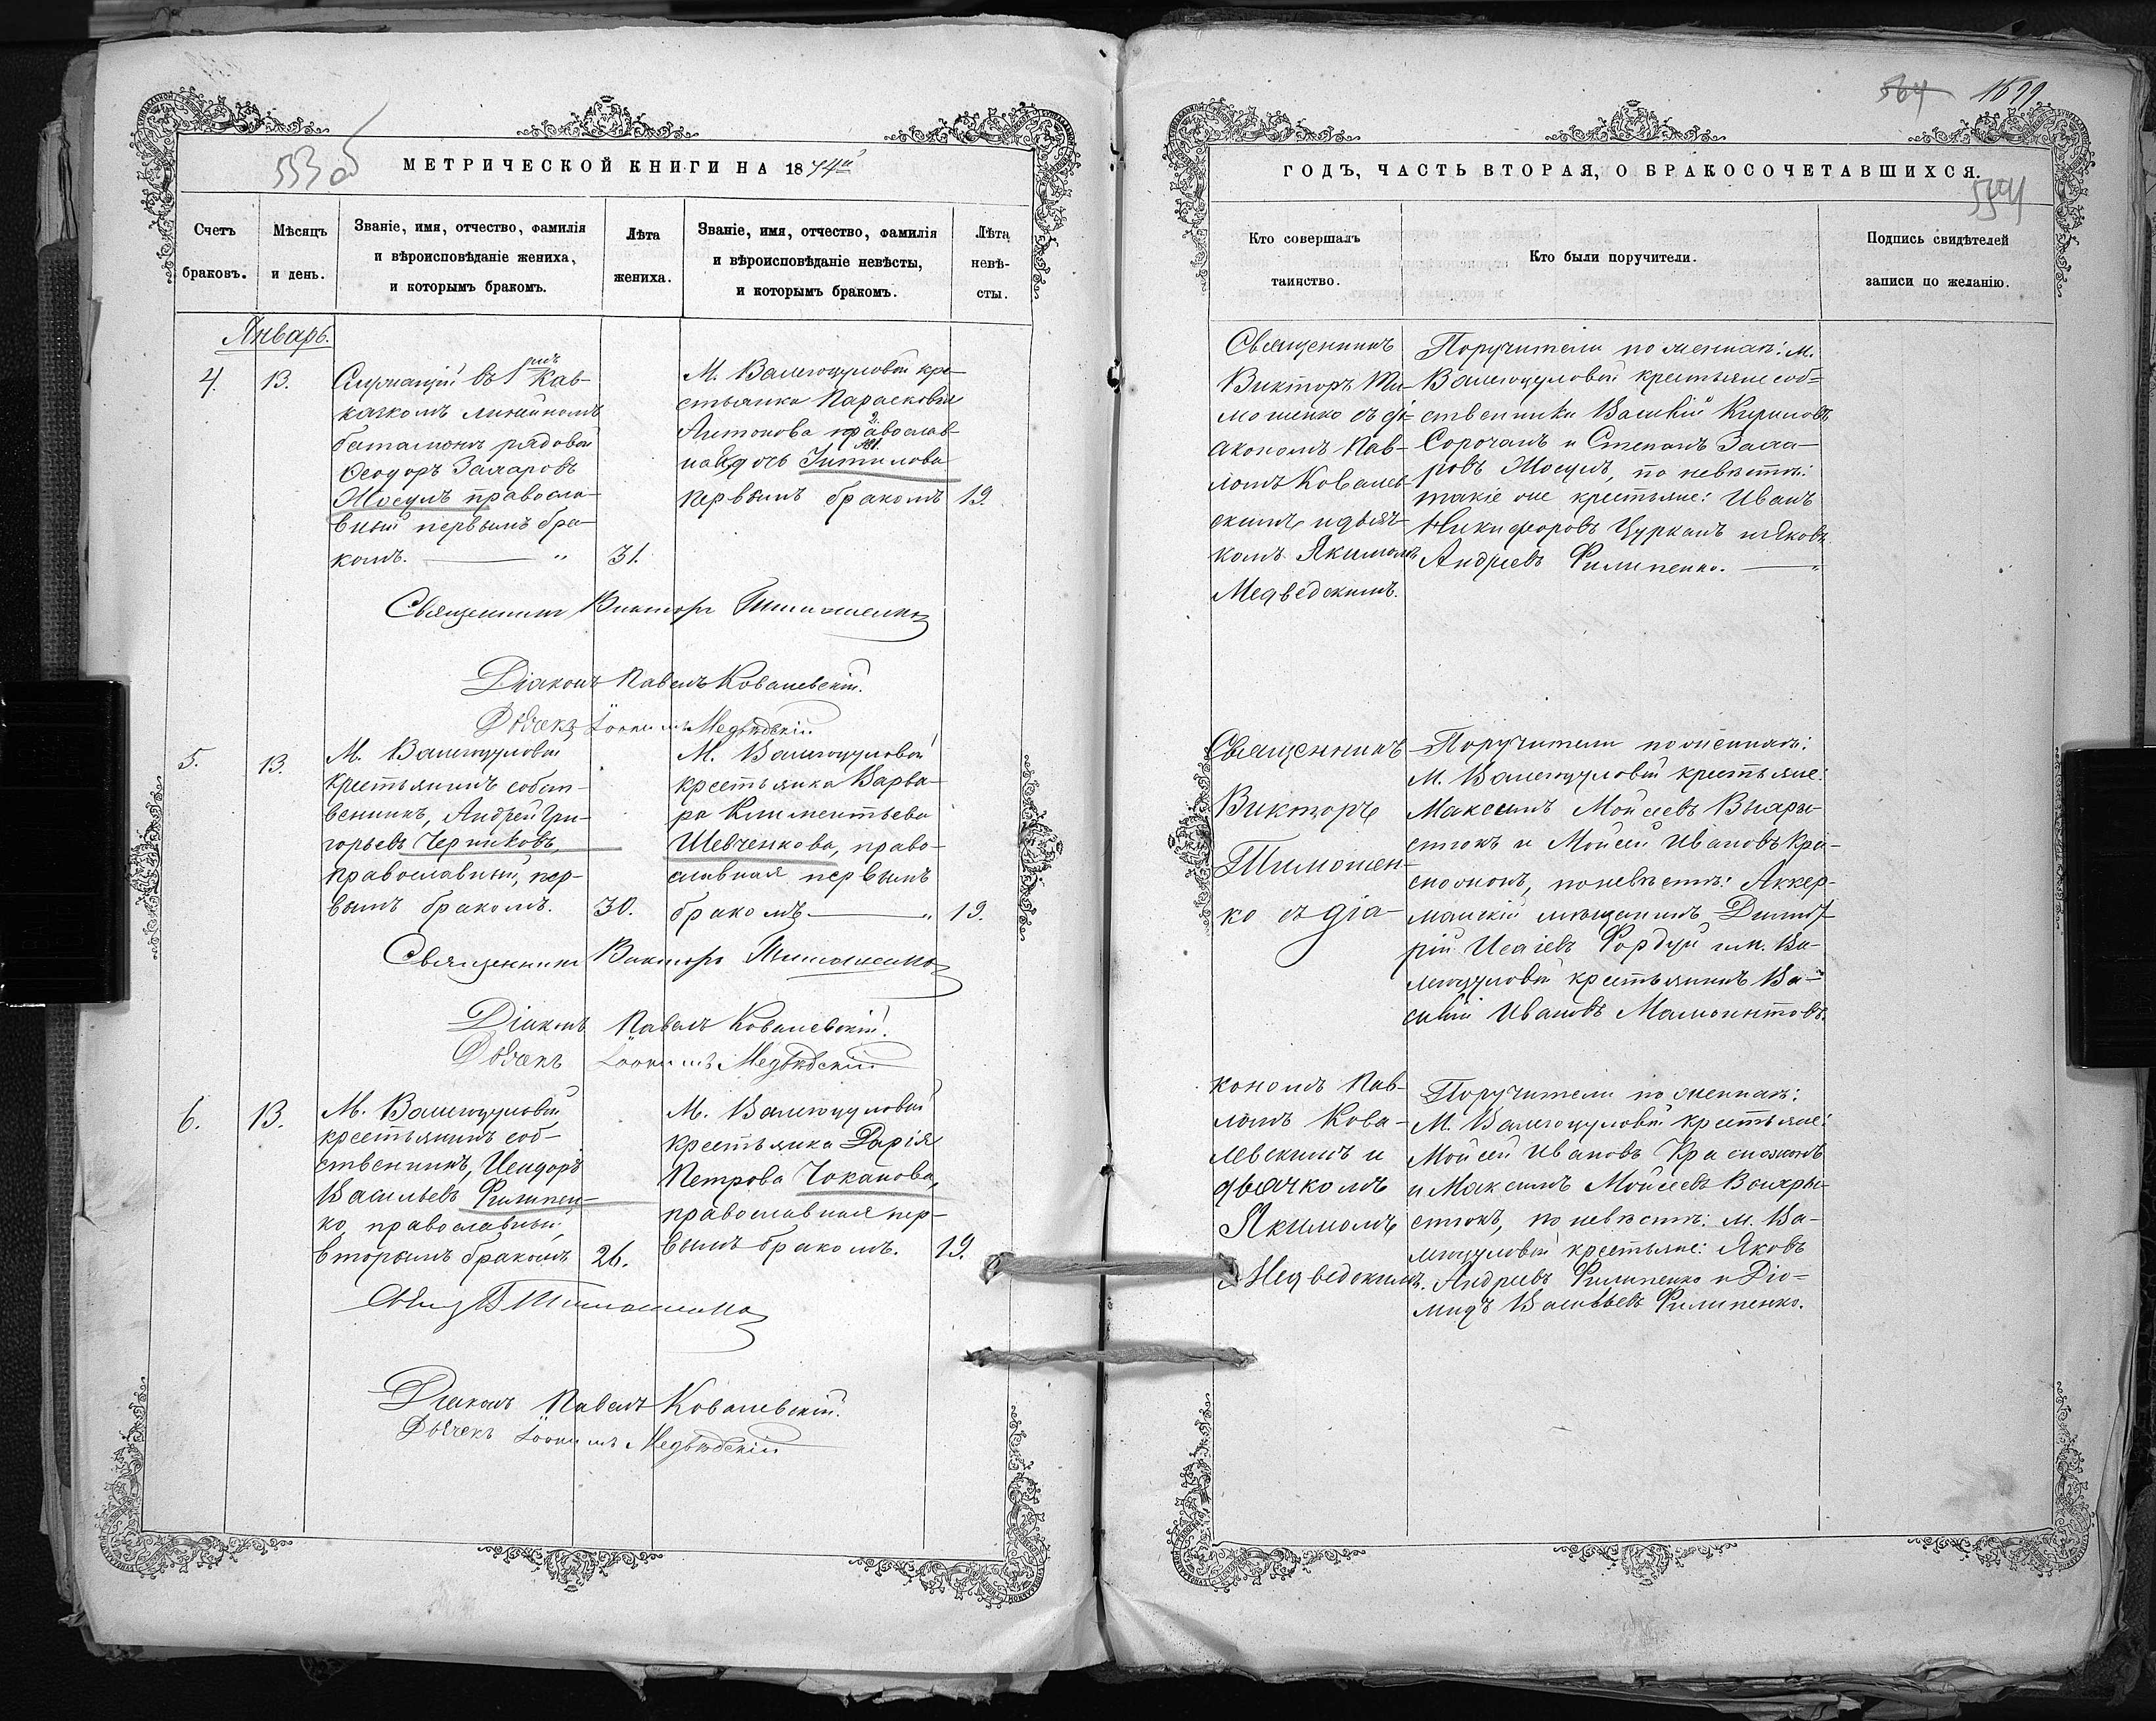 553 об
МЕТРИЧЕСКОЙ КНИГИ НА 1874й
Счетъ браковъ.
Мѣсяцъ и день.
Званіе, имя, отчество, фамилія и вѣроисповѣданіе жениха, и которымъ бракомъ.
Лѣта жениха.
Званіе, имя, отчество, фамилія и вѣроисповѣданіе невѣсты, и которымъ бракомъ.
Лѣта невѣ-
сты.
Январь.
4.
13.
Служащій въ 1мъ Кав-
казкомъ линейномъ
баталіонѣ рядовой
Ѳеодоръ Захаровъ
православ-
вный первымъ бра-
комъ. 31.
М. Валегоцуловой кре-
стьянка Парасковія
Антонова православ-
ная
первымъ бракомъ 19.
Священникъ Викторъ Тимошенко
Діаконъ Павелъ Ковалевскій.
Дьячекъ Іоакимъ Медвѣдскій
5.
13.
М. Валегоцуловой
крестьянинъ собст-
венникъ, Андрей Гри-
горьевъ Черниковъ,
православный, пер-
вымъ бракомъ. 30.
М. Валегоцуловой
крестьянка Варва-
ра Климентьева
Шевченкова, право-
славная первымъ
бракомъ 19.
Священникъ Викторъ Тимошенко
Діаконъ Павелъ Ковалевскій.
Дьячекъ Іоакимъ Медвѣдскій
6.
13.
М. Валегоцуловой
крестьянинъ соб-
ственникъ, Исидоръ
Васильевъ Филипен-
ко, православный,
вторымъ бракомъ 26.
М. Валегоцуловой
крестьянка Дарія
Петрова Чоканова,
православная пер-
вымъ бракомъ. 19.
Свящ В Тимошенко
Діаконъ Павелъ Ковалевскій.
Дьячекъ Іоакимъ Медвѣдскій
564
1699
ГОДЪ, ЧАСТЬ ВТОРАЯ, О БРАКОСОЧЕТАВШИХСЯ.
554
Кто совершалъ таинство.
Кто были поручители.
Подпись свидѣтелей записи по желанію.
Священникъ
Викторъ Ти-
мошенко съ ді-
акономъ Пав-
ломъ Ковалев-
скимъ и дьяч-
комъ Якимомъ
Медведскимъ.
Поручители по женихѣ: М.
Валегоцуловой крестьяне соб-
ственники Василій Кириловъ
Сорочанъ и Степанъ Заха-
ровъ по невѣстѣ:
такіе же крестьяне: Иванъ
Никифоровъ Цурканъ и Яковъ
Андреевъ Филипенко.
Священникъ
Викторъ
Тимошен-
ко съ діа-
Поручители по женихѣ:
М. Валегоцуловой крестьяне:
Максимъ Мойсеевъ Выхры-
стюкъ и Мойсей Ивановъ Кра-
сножонъ, по невѣстѣ: Аккер-
манскій мѣщанинъ Димит-
рій Исаіевъ Фордуй и м. Ва-
легоцуловой крестьянинъ Ва-
силій Ивановъ Мамонтовъ.
кономъ Пав-
ломъ Кова-
левскимъ и
дьячкомъ
Якимомъ
Медведскимъ.
Поручители по женихѣ:
М. Валегоцуловой крестьяне:
Мойсей Ивановъ Красножонъ
и Максимъ Мойсеевъ Выхры-
стюкъ, по невѣстѣ: м. Ва-
легоцуловой крестьяне: Яковъ
Андреевъ Филипенко и Діо-
мидъ Васильевъ Филипенко.